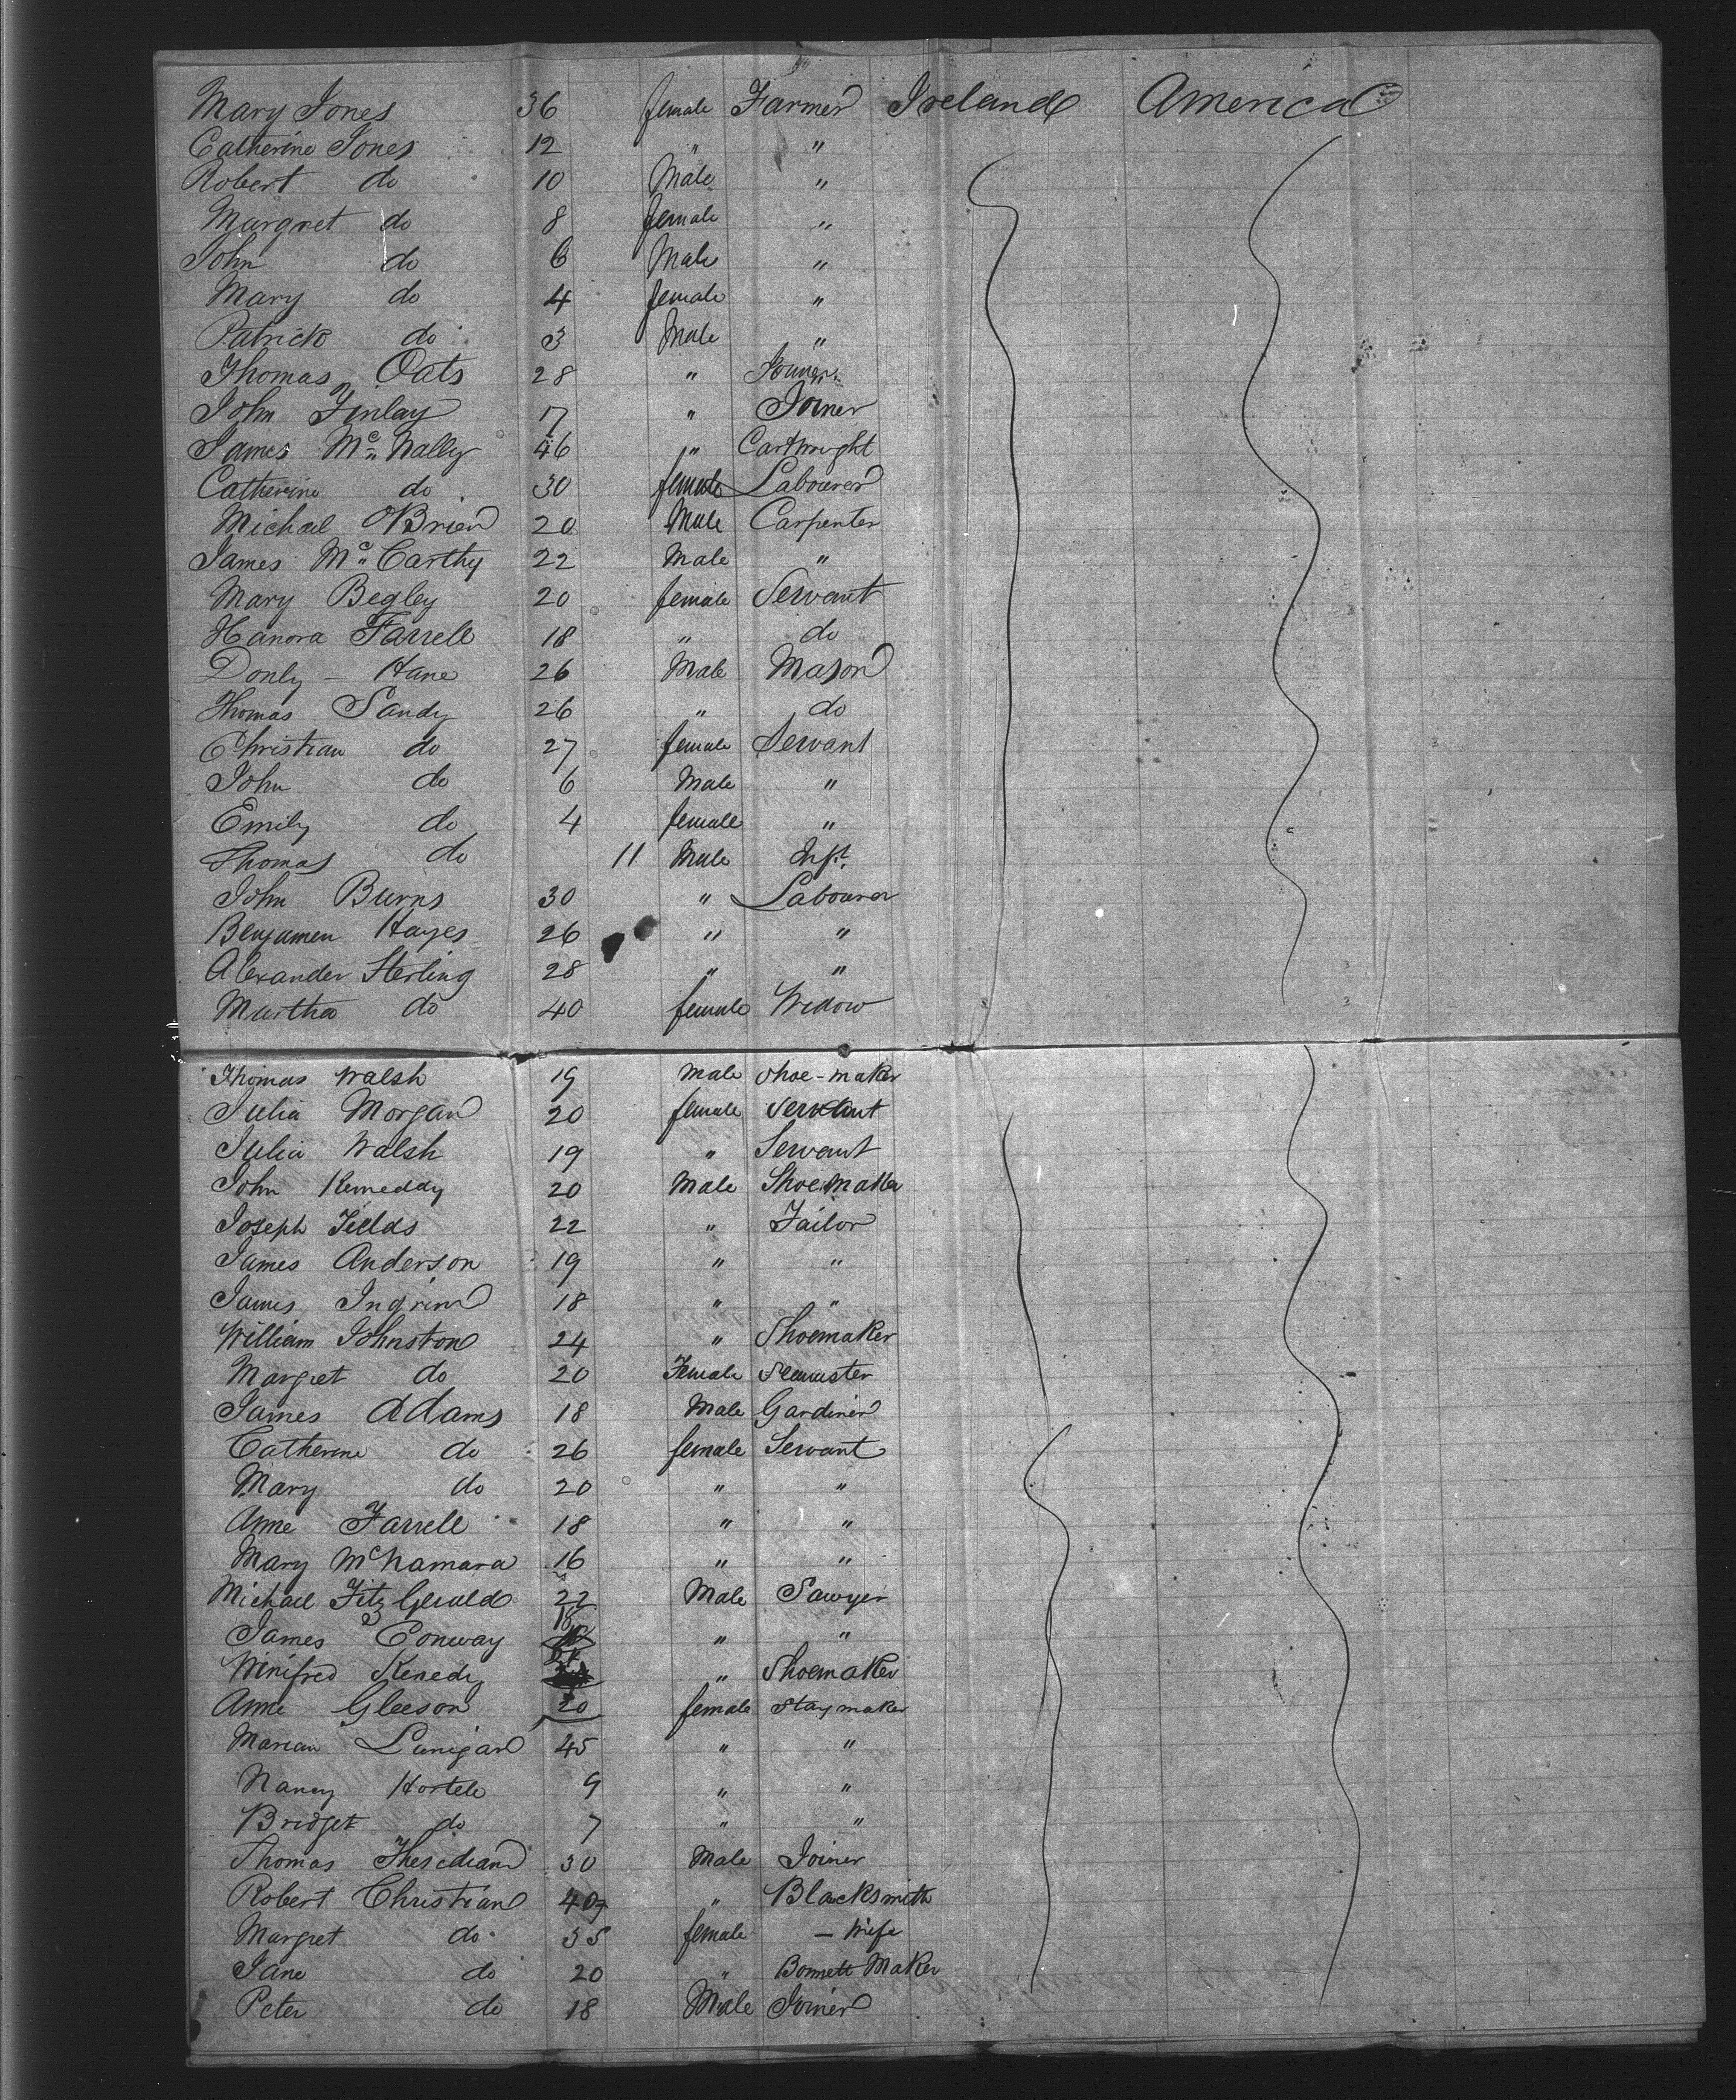 Mary Jones 36 female Farmer Ireland America
Catherine Jones 12 " "
Robert do 10 Male "
Margret do 8 female "
John do 6 Male "
Mary do 4 female "
Patrick do 3 Male "
Thomas Oats 28 "
John Finlay 17 " Joiner
James Mc Nally 46 " Cartwright
Catherine do 30 female Labourer
Michael O'Brien 20 Male Carpenter
James Mc Carthy 22 Male "
Mary Begley 20 female Servant
Hanora Farrell 18 " do
Donly - Hane 26 Male Mason
Thomas Sandy 26 " do
Christian do 27 female Servant
John do 6 Male "
Emily do 4 female "
Thomas do 11 Male Inft.
John Burns 30 " Labourer
Benjamen Hayes 26 " "
Alexander Sterling 28 " "
Martha do 40 female Widow
Thomas Walsh 19 Male Shoe-maker
Julia Morgan 20 female Servant
Julia Walsh 19 " Servant
John Kenneddy 20 Male Shoemaker
Joseph Fields 22 " Tailor
James Anderson 19 " "
James Ingrim 18 " "
William Johnston 24 " Shoemaker
Margret do 20 Female
James Adams 18 Male Gardiner
Catherine do 26 female Servant
Mary do 20 " "
Anne Farrell 18 " "
Mary McNamara 16 " "
Michael Fitz Gerald 22 Male Sawyer
James Conway 18 " "
Winifred Kenedy " Shoemaker
Anne Gleeson 20 female Stay maker
Marian Lunigan 45 " "
Nancy Hortele 9 " "
Bridget do 7 " "
Thomas 30 Male Joiner
Robert Christian 40 " Blacksmith
Margret do 35 female - Wife
Jane do 20 " Bonnett Maker
Peter do 18 Male Joiner